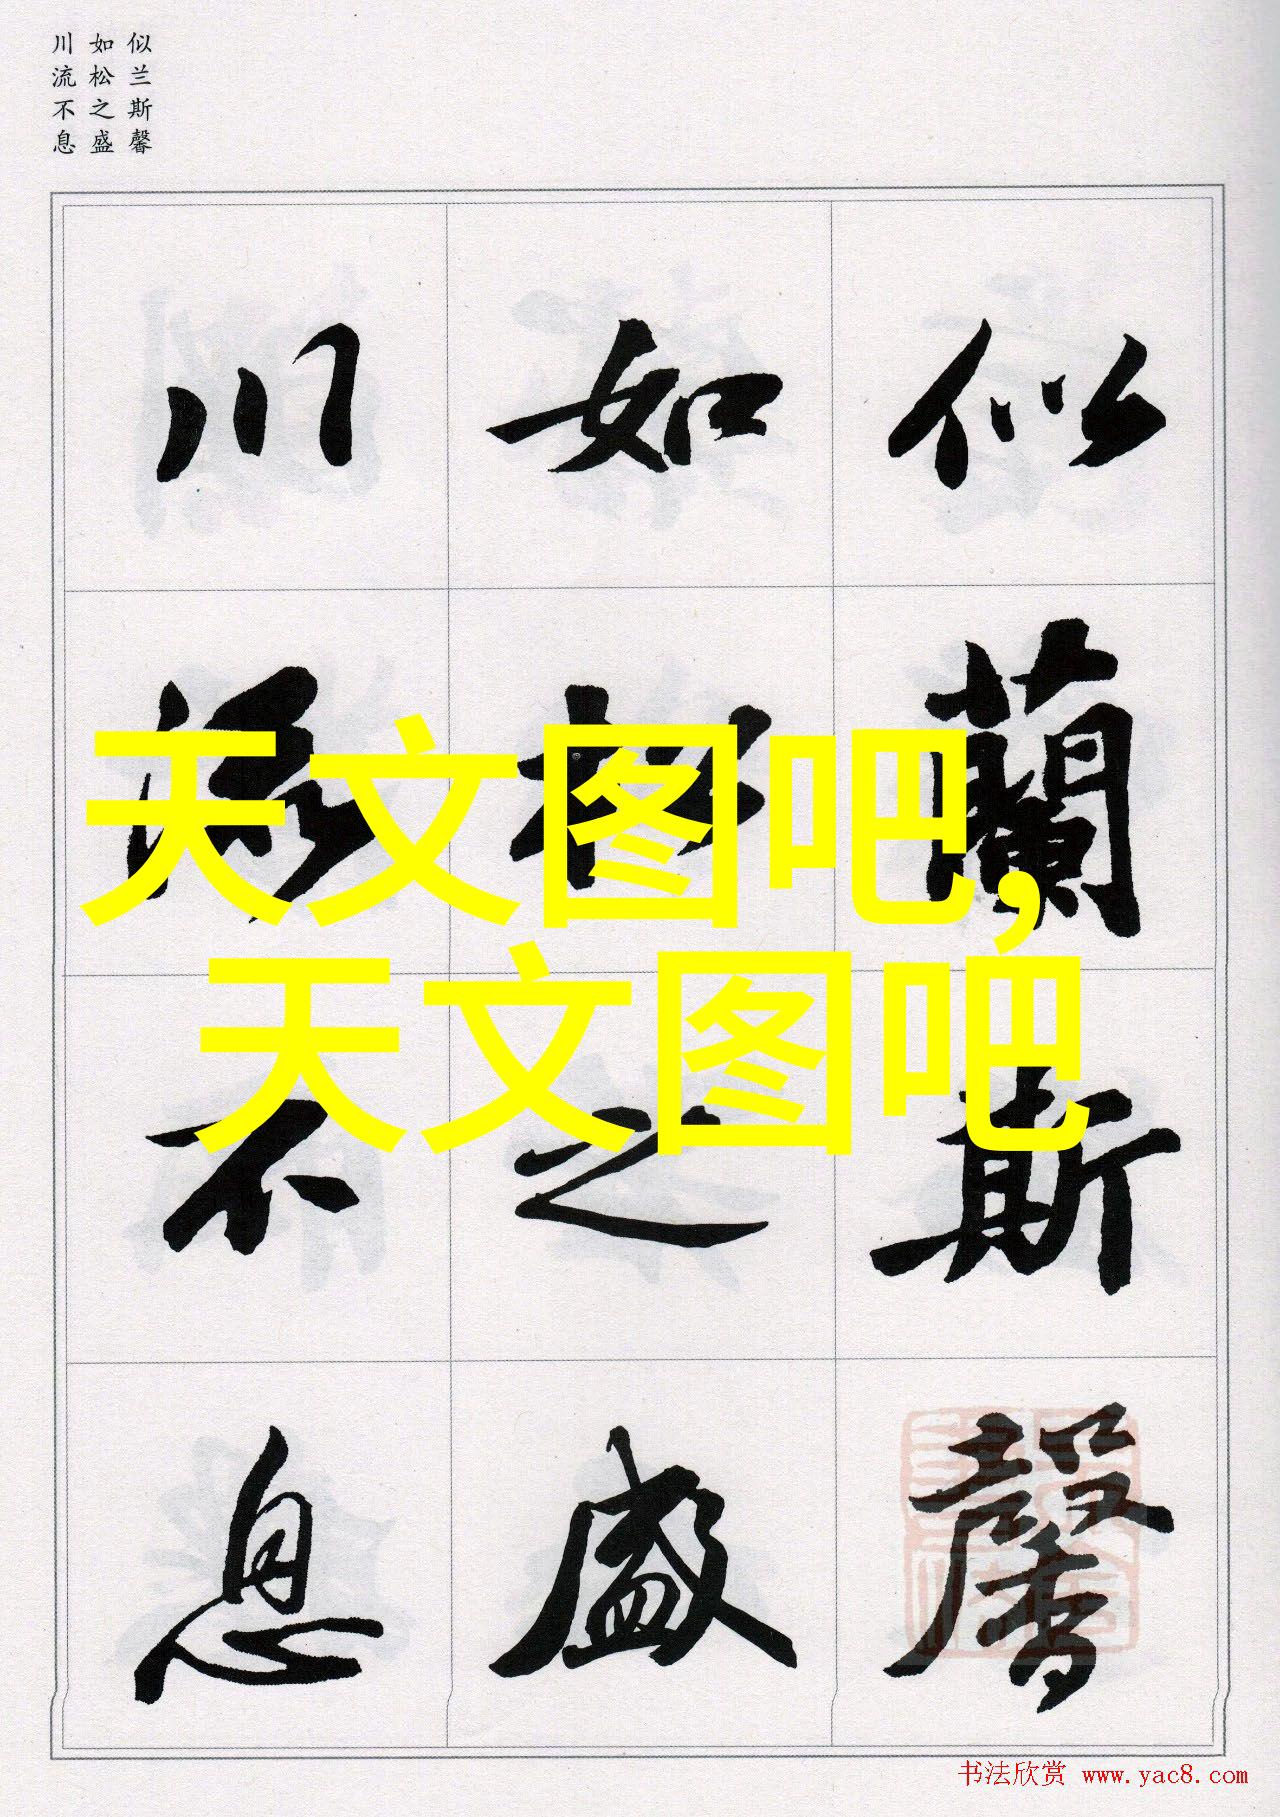 似兰斯馨
如松之盛
川流不息
似蘭斯馨
如松之盛
川流不息
天文图吧,
天文图吧
书法欣赏 www.yac8.com